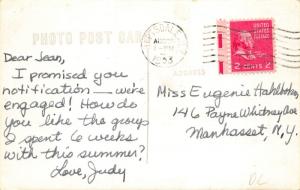 PHOTO POST CARD
ADDRESS
1953
UNITED STATES POSTAGE
2 CENTS 2
Dear Jean,
I promised you
notification — we're
engaged! How do
you like the group
I spent 6 weeks
with this summer?
Love, Judy
Miss Eugenie Hahlbohm
146 Payne Whitney Ave
Manhasset, N.Y.